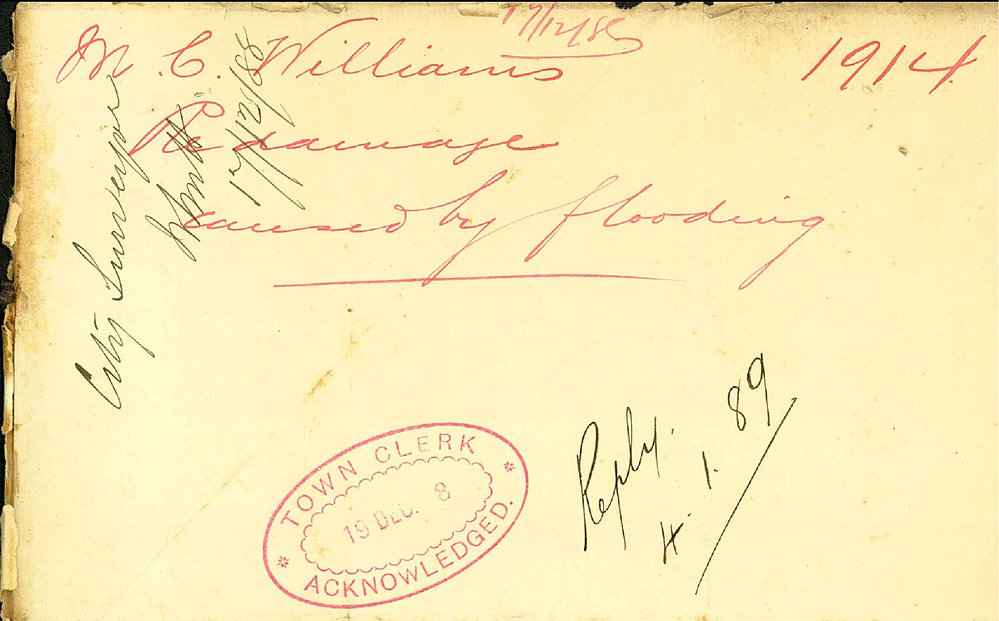 17/12/88
M. C. Williams
1914
Re damage
caused by flooding
City Surveyor
17/12/88
TOWN CLERK
19 DEC. 8
ACKNOWLEDGED.
Reply.
4. 1. 89